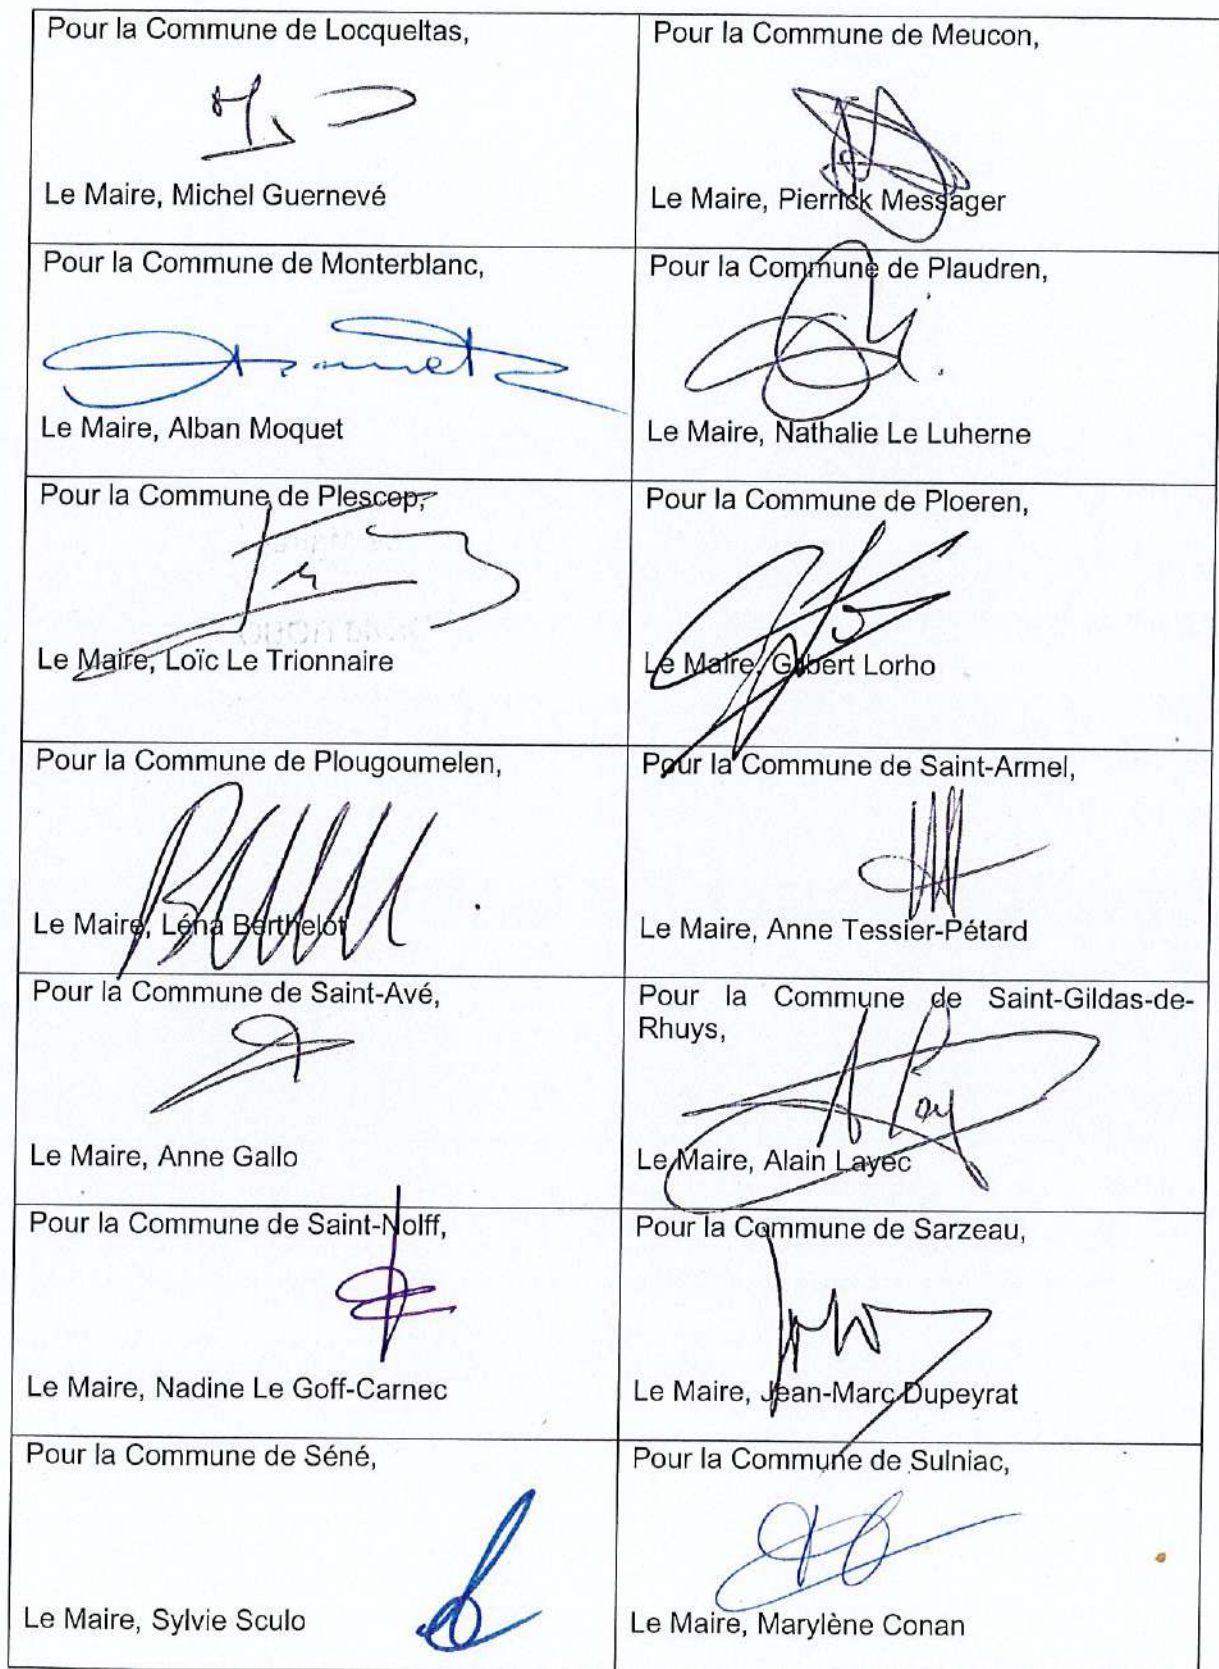 Pour la Commune de Locqueltas,
Le Maire, Michel Guernevé
Pour la Commune de Meucon,
Le Maire, Pierrick Messager
Pour la Commune de Monterblanc,
Le Maire, Alban Moquet
Pour la Commune de Plaudren,
Le Maire, Nathalie Le Luherne
Pour la Commune de Plescop,
Le Maire, Loïc Le Trionnaire
Pour la Commune de Ploeren,
Le Maire, Gilbert Lorho
Pour la Commune de Plougoumelen,
Le Maire, Léna Berthelot
Pour la Commune de Saint-Armel,
Le Maire, Anne Tessier-Pétard
Pour la Commune de Saint-Avé,
Le Maire, Anne Gallo
Pour la Commune de Saint-Gildas-de-
Rhuys,
Le Maire, Alain Layec
Pour la Commune de Saint-Nolff,
Le Maire, Nadine Le Goff-Carnec
Pour la Commune de Sarzeau,
Le Maire, Jean-Marc Dupeyrat
Pour la Commune de Séné,
Le Maire, Sylvie Sculo
Pour la Commune de Sulniac,
Le Maire, Marylène Conan